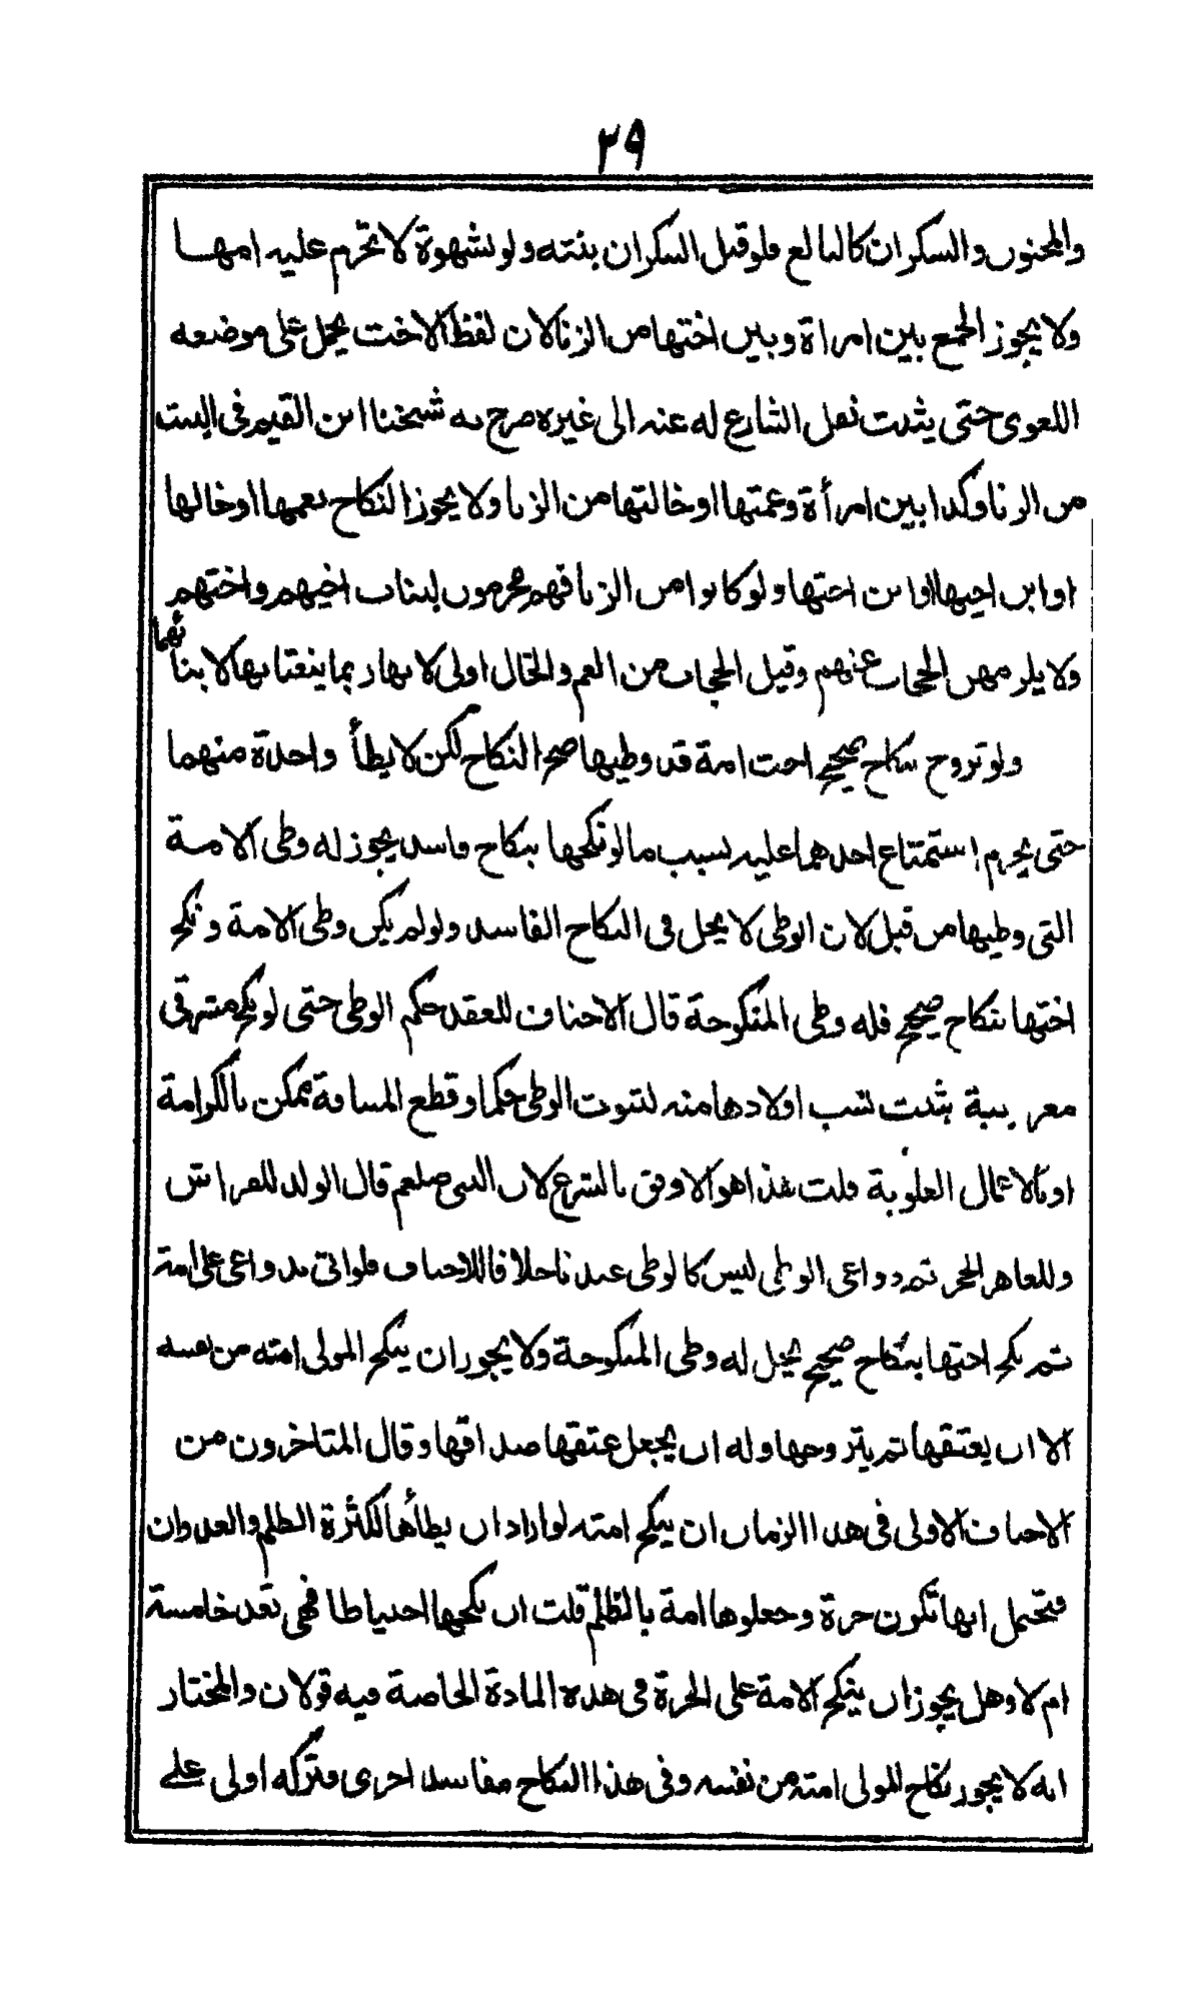 ٢٩
والمجنون والسكران كالبالغ فلو قبل السكران بنته ولو لشهوة لا تحرم عليه امها
ولا يجوز الجمع بين امراة وبين اختها من الزنا لان لفظ الاخت يحمل على موضعه
اللغوى حتى يثبت نقل الشارع له عنه الى غيره صرح به شيخنا ابن القيم فى البنت
من الزنا وكذا بين امرأة وعمتها او خالتها من الزنا ولا يجوز النكاح بعمها او خالها
او ابن اخيها او ابن اختها ولو كانوا من الزنا فهم محرمون لبنات اخيهم واختهم
ولا يلزمهن الحجاب عنهم وقيل الحجاب من العم والخال اولى لانهما ربما ينعتانها لابنائهما
ولو تزوج بنكاح صحيح اخت امة قد وطيها صح النكاح لكن لا يطأ واحدة منهما
حتى يحرم استمتاع احدهما عليه بسبب ما لو نكحها بنكاح فاسد يجوز له وطى الامة
التى وطيها من قبل لان الوطى لا يحل فى النكاح الفاسد ولو لم يكن وطى الامة ونكح
اختها بنكاح صحيح فله وطى المنكوحة قال الاحناف للعقد حكم الوطى حتى لو نكح مشرقى
مغربية يثبت نسب اولادها منه لثبوت الوطى حكما وقطع المسافة ممكن بالكرامة
او بالاعمال العلوية قلت هذا هو الاوفق بالشرع لان النبى صلعم قال الولد للفراش
وللعاهر الحجر ثم دواعى الوطى ليس كالوطى عندنا خلافا للاحناف فلو اتى بدواعى على امته
ثم نكح اختها بنكاح صحيح يحل له وطى المنكوحة ولا يجوز ان ينكح المولى امته من نفسه
الا ان يعتقها ثم يتزوجها وله ان يجعل عتقها صداقها وقال المتاخرون من
الاحناف الاولى فى هذا الزمان ان ينكح امته لو اراد ان يطأها لكثرة الظلم والعدوان
فيحتمل انها تكون حرة وجعلوها امة بالظلم قلت ان نكحها احتياطا فهى تعد خامسة
ام لا وهل يجوز ان ينكح الامة على الحرة فى هذه المادة الخاصة فيه قولان والمختار
انه لا يجوز نكاح للمولى امته من نفسه وفى هذا النكاح مفاسد اخرى فتركه اولى على